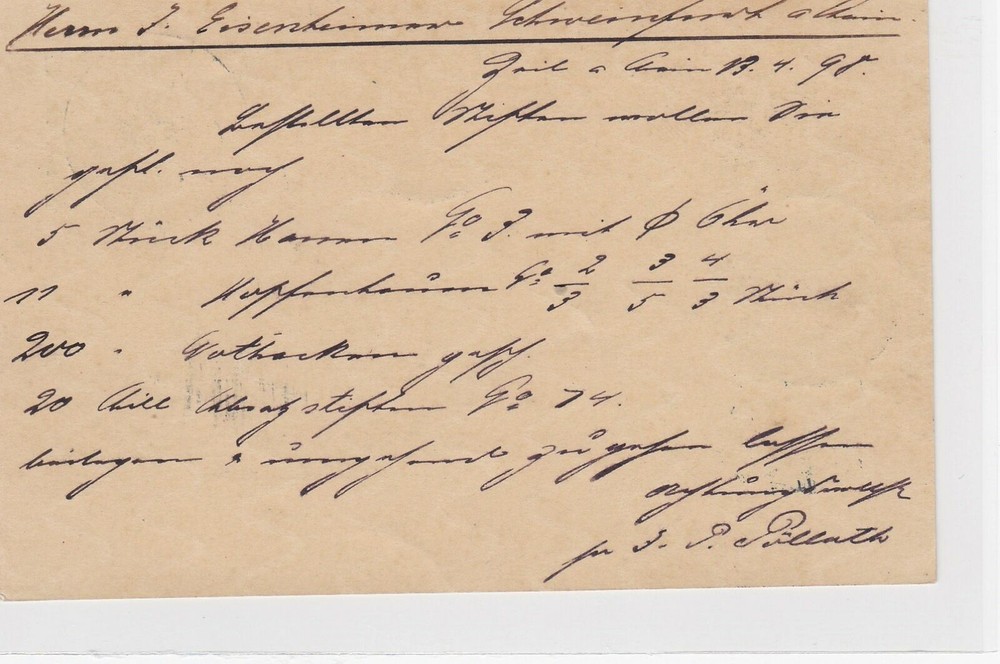 Herrn J. Eisenheimer Schweinfurt a Main.
Zeil a Main 13. 4. 98.
Bestellten Stiften wollen Sie
gefl. noch
5 Stück Hauen No 3. mit φ Öhr
11 " Hopfenhauen No 2/3 3/5 4/3 Stück
200 " gesch.
20 Mill Absatzstiften No 74.
beilegen & umgehend zugehen lassen
Achtungsvollst
pr J. P. Pöllath